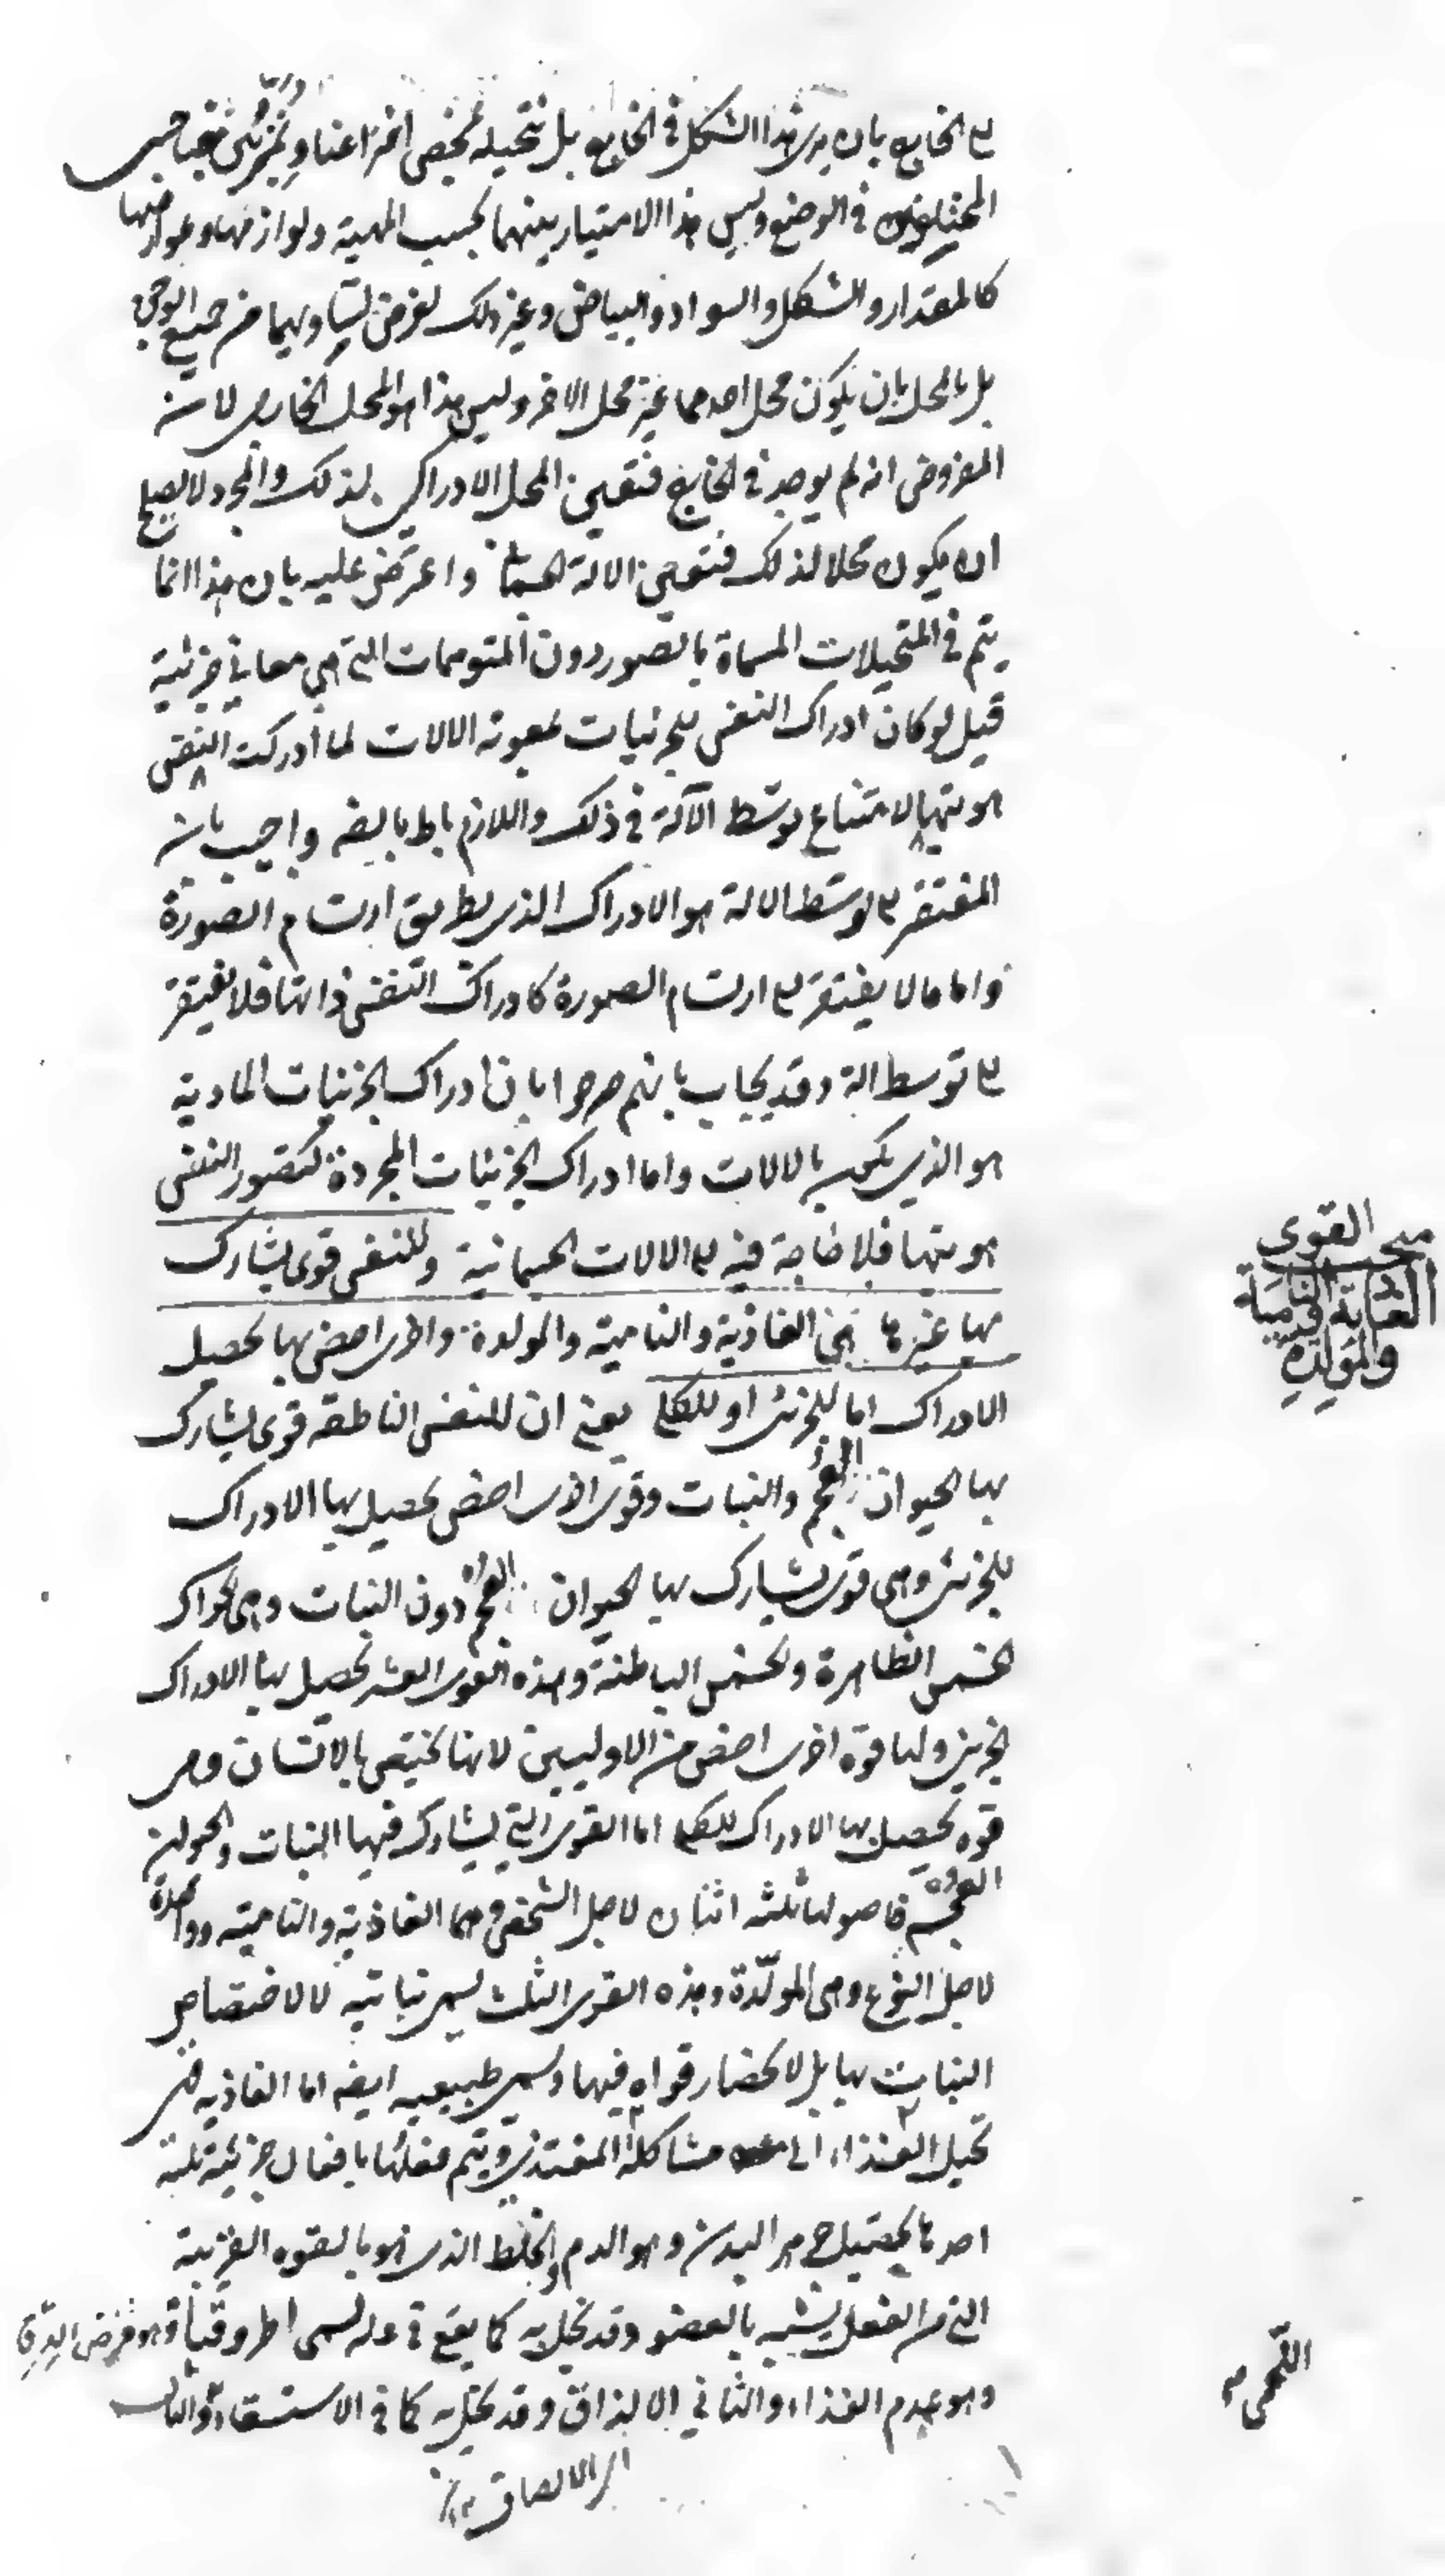 الخارج بان يرى هذا الشكل في الخارج بل نتخيله بمحض اختراعنا
في الوضع وليس هذا الامتياز بينهما بحسب المهية ولوازمها وعوارضها
كالمقدار والشكل والسواد والبياض وغير ذلك لفرض تساويهما من جميع الوجوه
بل بالمحل بان يكون محل احدهما غير محل الاخر وليس هذا هو المحل الخارجى لان
المفروض انه لم يوجد في الخارج فتعين المحل الادراكي لذلك والمجرد لا يصلح
ان يكون محلا لذلك فتعين الالة الجسمانية واعترض عليه بان هذا انما
يتم في المتخيلات المسماة بالصور دون المتوهمات التي هي معاني جزئية
قيل لو كان ادراك النفس للجزئيات بمعونة الالات لما أدركت النفس
هويتها لامتناع توسّط الآلة في ذلك واللازم باطل بالضرورة واجيب بان
المفتقر الى توسّط الالة هو الادراك الذى بطريق ارتسام الصورة
واما ما لا يفتقر الى ارتسام الصورة كادراك النفس ذاتها فلا يفتقر
الى توسط الة وقد يجاب بانهم صرحوا بان ادراك الجزئيات المادية
هو الذي يكون بالالات واما ادراك الجزئيات المجردة كتصور النفس
هويتها فلا حاجة فيه الى الالات الجسمانية وللنفس قوى تشارك
بها غيرها هي الغاذية والنامية والمولدة واخرى اخص بها يحصل
الادراك اما للجزئى او للكلى يعنى ان للنفس الناطقة قوى تشارك
بها الحيوان العجم والنبات وقوى اخرى اخص يحصل بها الادراك
للجزئى وهى قوى تشارك بها الحيوان العجم دون النبات وهى الحواس
الخمس الظاهرة والخمس الباطنة وهذه القوى العشر تحصل بها الادراك
الجزئى ولها قوة اخرى اخص من الاوليين لانها تختص بالانسان وهى
قوة يحصل بها الادراك للكلى اما القوى التي يشارك فيها النبات والحيوان
العجم فاصولها ثلثة اثنان لاجل الشخص وهما الغاذية والنامية وواحدة
لاجل النوع وهى المولّدة وهذه القوى الثلث تسمى نباتية لا لاختصاص
النبات بها بل لانحصار قواه فيها وتسمى طبيعية ايضا اما الغاذية فهى
تحيل الغذاء الى مشاكلة المغتذى ويتم فعلها بافعال جزئية ثلثة
احدها تحصيل جوهر البدن وهو الدم والخلط الذى هو بالقوة القريبة
التى من الفعل يشبه بالعضو وقد تخل به كما يقع في علة تسمى اطروفيا وهو مرض الدق
وهو عدم الغذاء والثاني الالزاق وقد تخل به كما في الاستسقاء والثالث
اى الالصاق ١٢
مبحث القوى
الغاذية والنامية
والمولدة